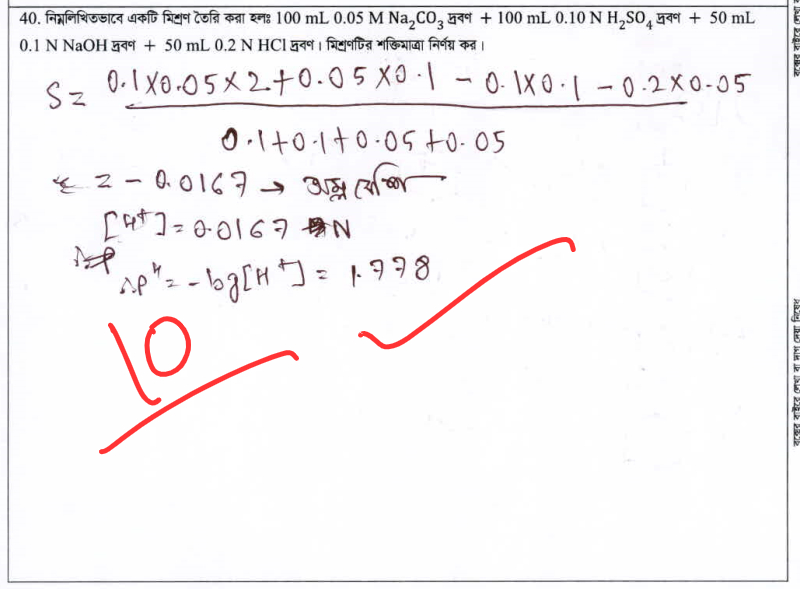 40. নিম্নলিখিতভাবে একটি মিশ্রণ তৈরি করা হলঃ 100 mL 0.05 M Na₂CO₃ দ্রবণ + 100 mL 0.10 N H₂SO₄ দ্রবণ + 50 mL
0.1 N NaOH দ্রবণ + 50 mL 0.2 N HCl দ্রবণ। মিশ্রণটির শক্তিমাত্রা নির্ণয় কর।
S = 0.1×0.05×2+0.05×0.1 - 0.1×0.1 - 0.2×0.05
0.1+0.1+0.05+0.05
= -0.0167 → অম্ল বেশি
[H⁺] = 0.0167 N
∴ pH = -log[H⁺] = 1.778
10